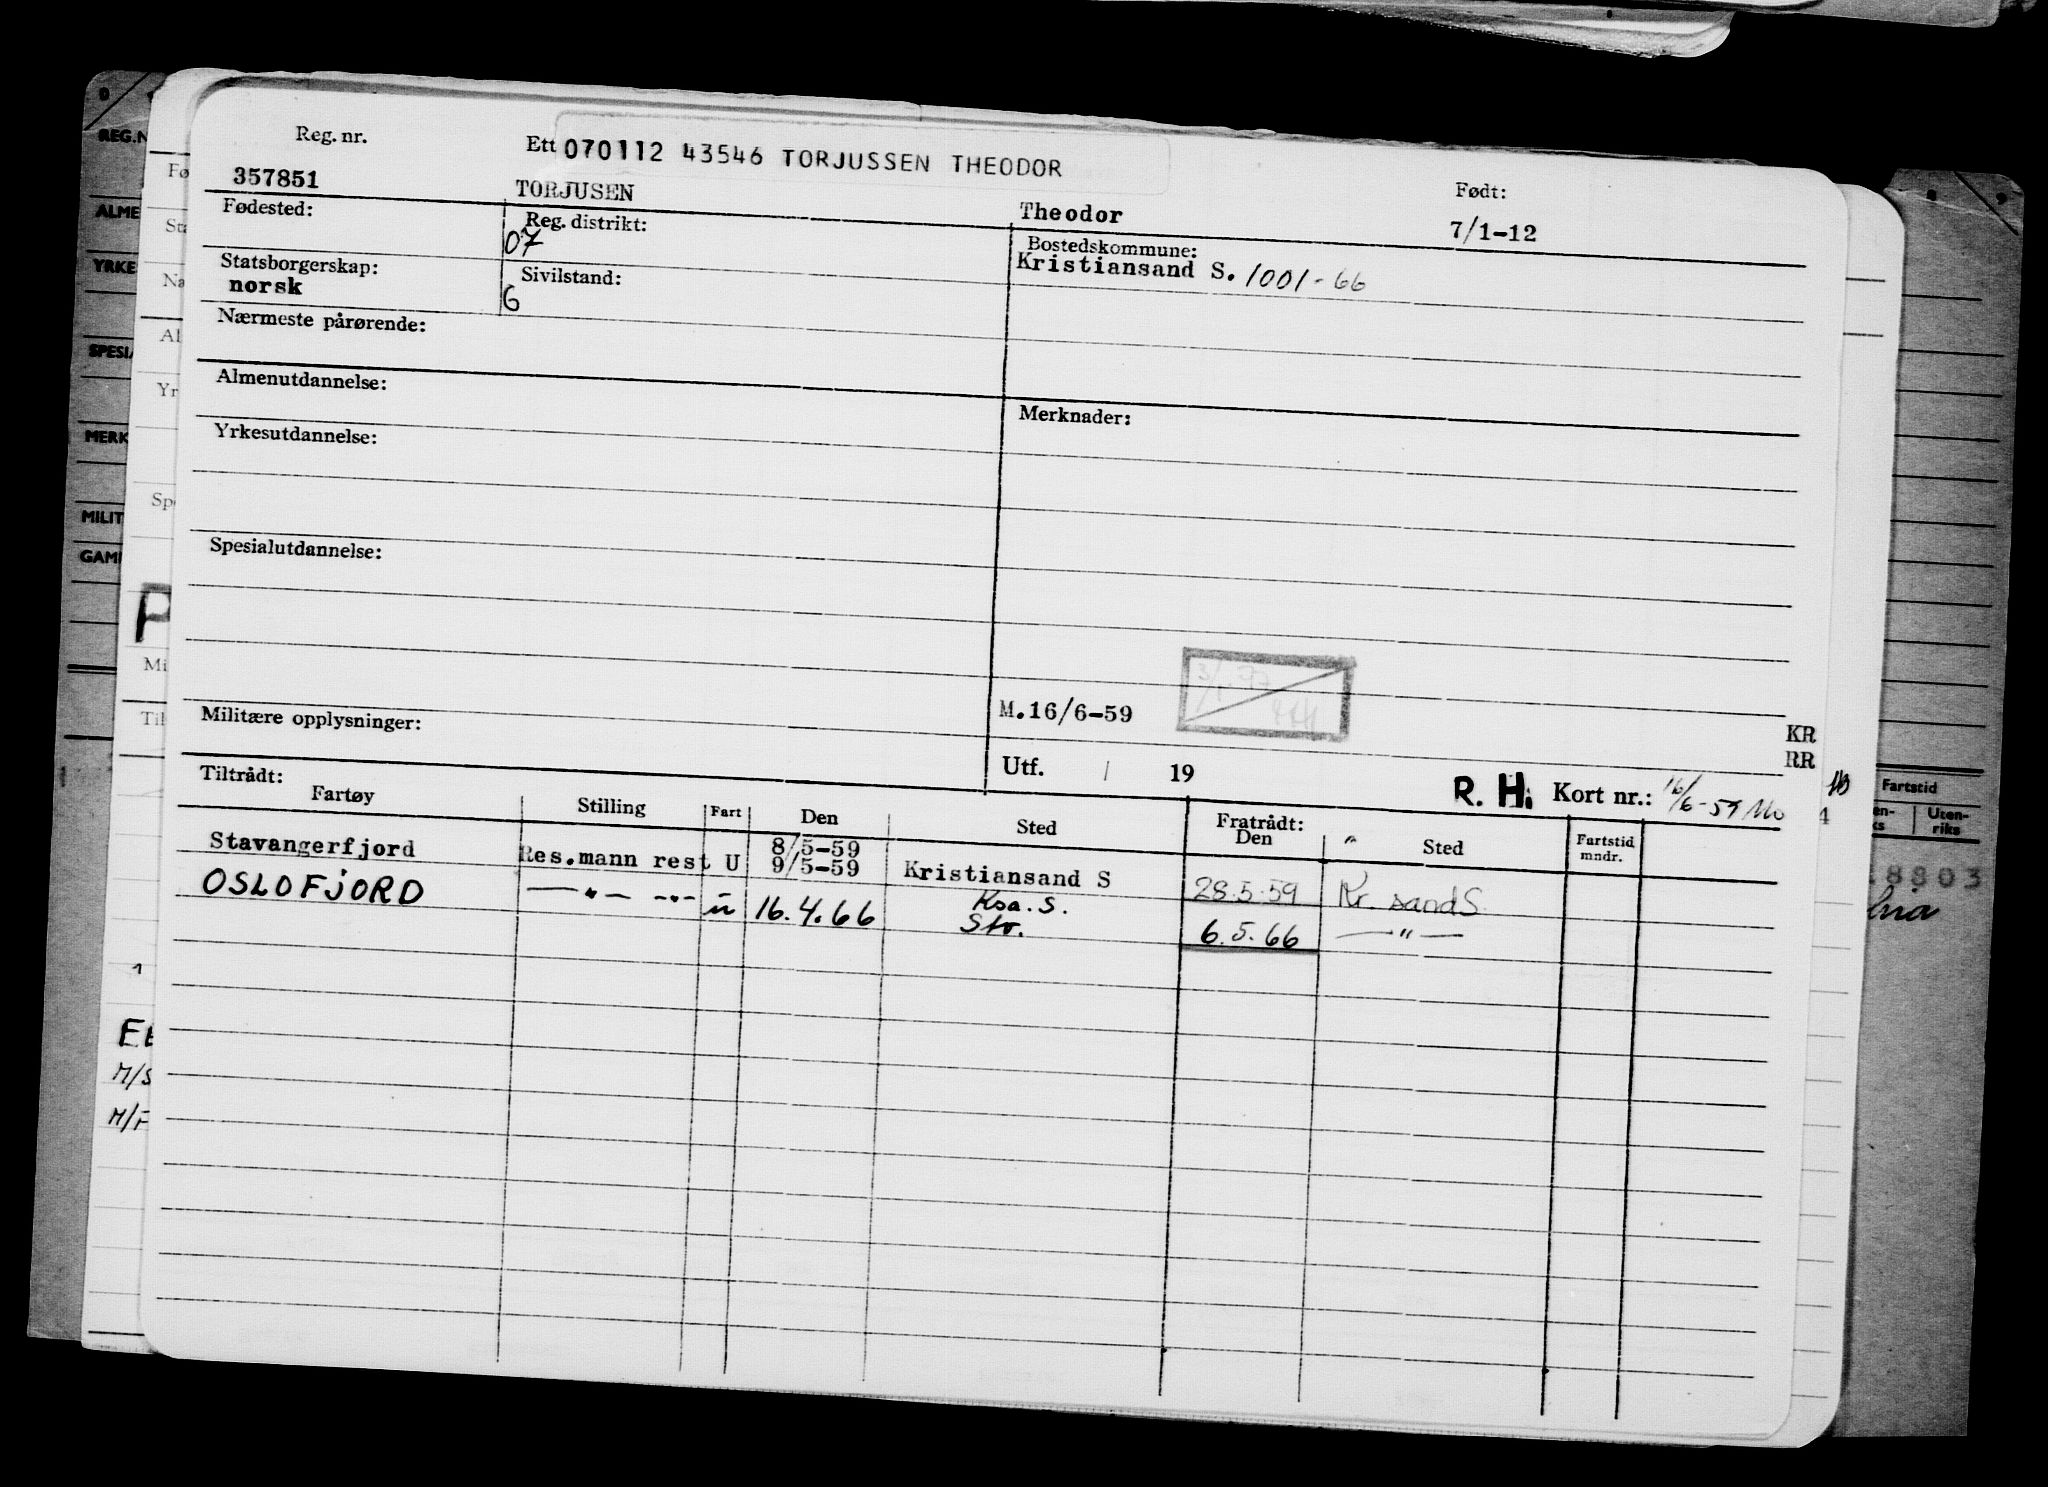 Reg. nr. Ett 070112 43546 TORJUSSEN THEODOR Født:
357851 TORJUSEN Theodor 7/1-12
Fødested: Reg. distrikt: Bostedskommune:
07 Kristiansand S. 1001-66
Statsborgerskap: Sivilstand:
norsk G
Nærmeste pårørende:
Almenutdannelse: Merknader:
Yrkesutdannelse:
Spesialutdannelse:
3/1-77
M.16/6-59
Militære opplysninger: KR
RR
Utf. / 19 R. H. Kort nr.: 16/6-59 Mo
Tiltrådt: Fratrådt:
Fartøy Stilling Fart Den Sted Den " Sted Fartstid mndr.
Stavangerfjord Res.mann rest U 8/5-59 9/5-59 Kristiansand S 28.5.59 Kr. sand S.
OSLOFJORD —"— -"- u 16.4.66 Ksa. S. Str. 6.5.66 —"—
REG.N
ALME
YRKE
SPESI
MERK
MILIT
GAM
Fø
Sta
Na
Al
Yr
Spe
P
Mi
Til
M/S
Fartstid
Uten-
riks
8803